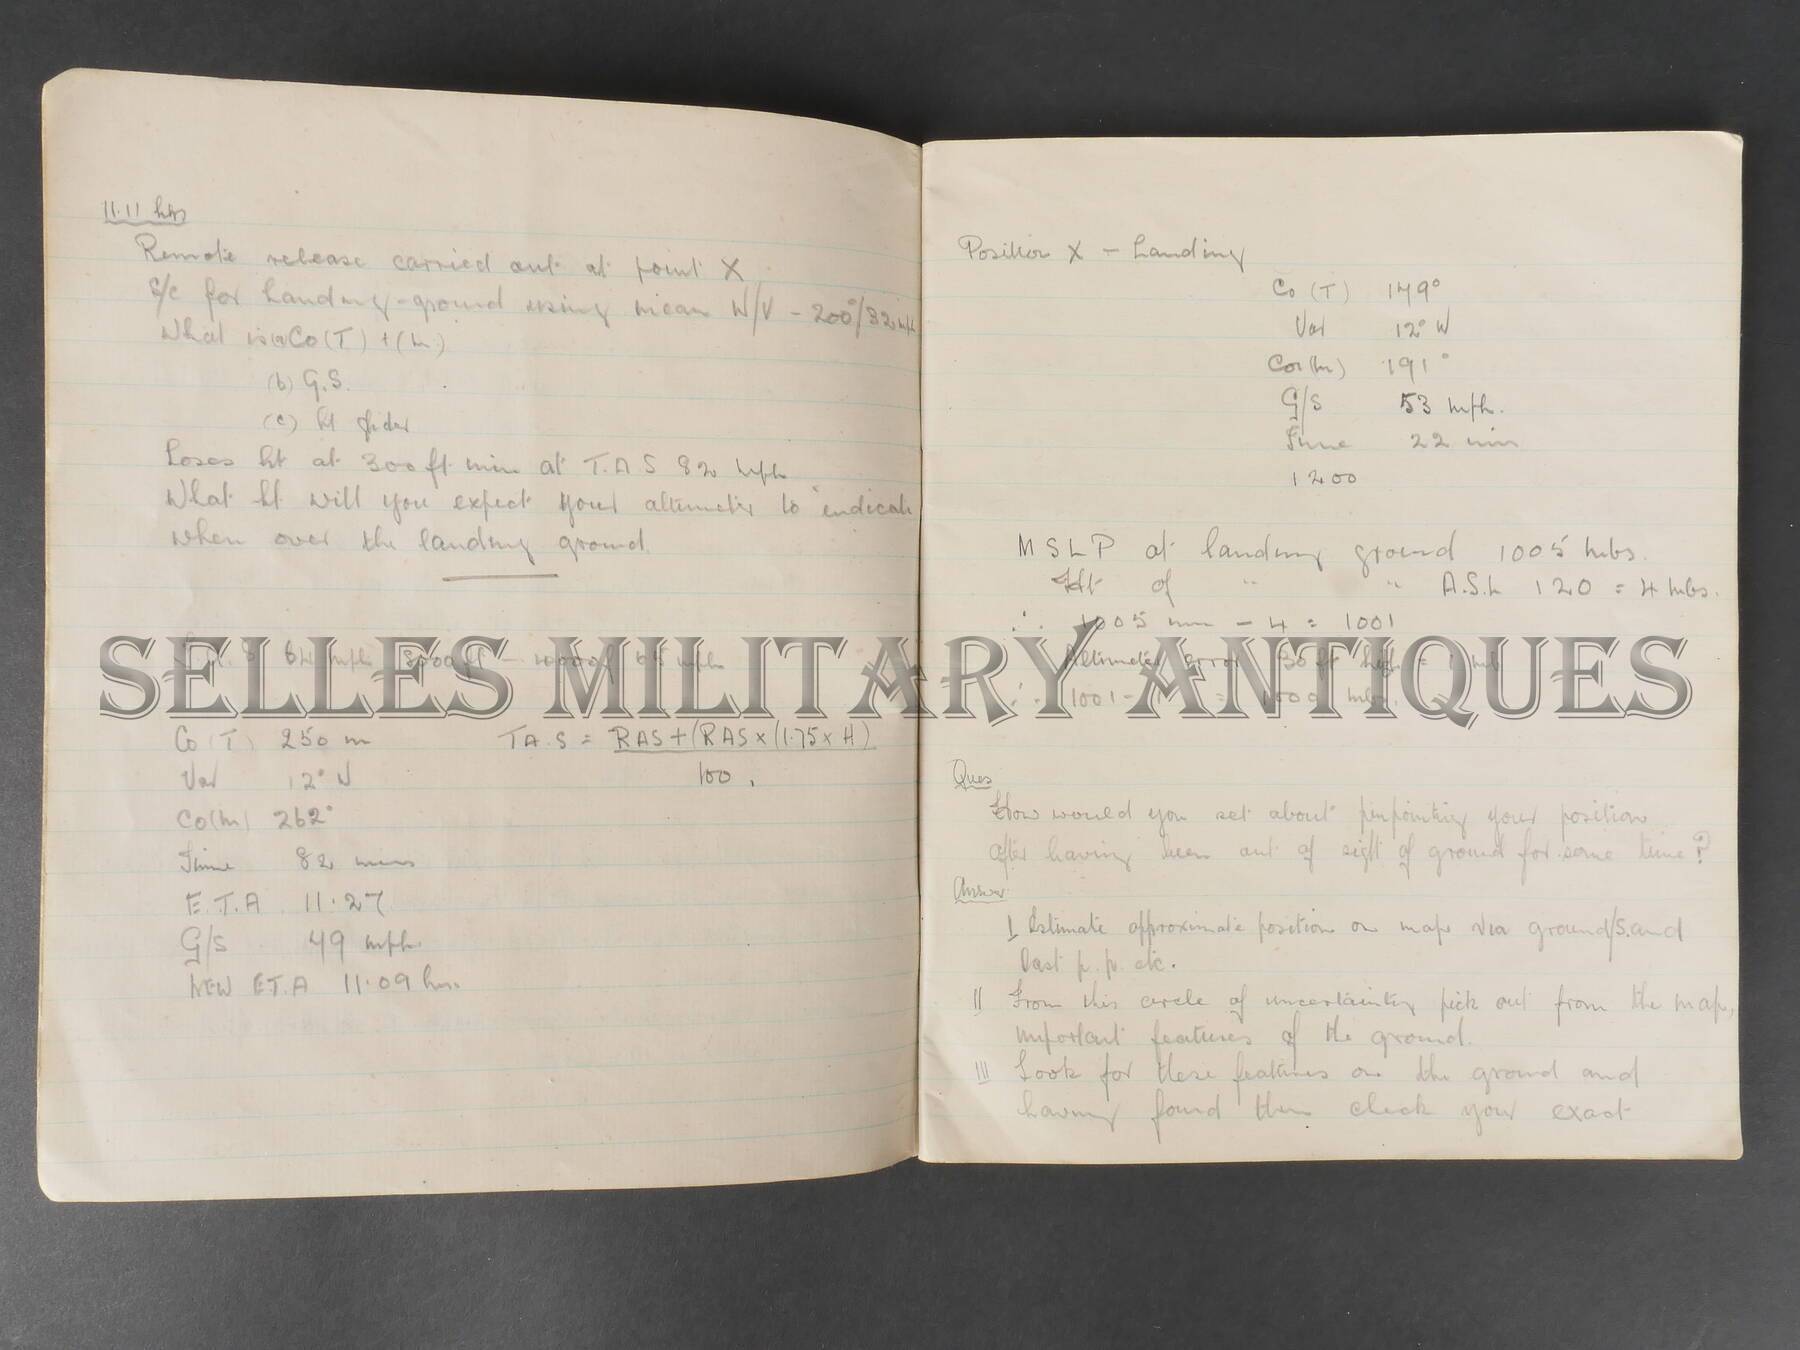 11.11 hrs
Remote release carried out at point X
S/C for landing-ground using mean W/V - 200°/32 mph
What is (a) Co (T) + (m)
(b) G.S.
(c) ht glider
Loses ht at 300 ft min at T.A.S 82 mph
What ht will you expect your altimeter to indicate
when over the landing ground.
64 mph 5000 ft - 10000 65 mph
Co (T) 250 m
Var 12° W
Co(m) 262°
Time 82 mins
E.T.A 11.27
G/S 49 mph.
NEW E.T.A 11.09 hrs.
T A.S = RAS + (RAS x (1.75 x H)
100.
Position X - Landing
Co (T) 179°
Var 12° W
Co (m) 191°
G/S 53 mph.
Time 22 min
1200
M S L P at landing ground 1005 mbs.
Ht of " " A.S.L 120 = 4 mbs.
∴ 1005 - 4 = 1001
Altimeter error 30 ft high = 1 mb
∴ 1001 - 1 = 1000 mbs.
SELLES MILITARY ANTIQUES
Ques
How would you set about pinpointing your position
after having been out of sight of ground for some time?
Answer
I Estimate approximate position on map via ground/S. and
last p.p. etc.
II From this circle of uncertainty pick out from the map,
important features of the ground.
III Look for these features on the ground and
having found them check your exact